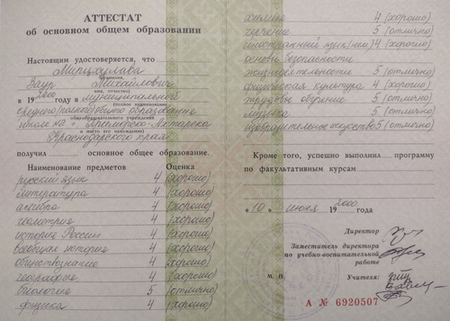 АТТЕСТАТ
об основном общем образовании
Настоящим удостоверяется, что
Мирцхулава
Заур Михайлович
в 19 2000 году в муниципальной
среднего общего образования
школе №
Краснодарского края
получил основное общее образование.
Наименование предметов Оценка
русский язык 4 (хорошо)
литература 4 (хорошо)
алгебра 4 (хорошо)
геометрия 4 (хорошо)
история России 4 (хорошо)
всеобщая история 4 (хорошо)
обществознание 4 (хорошо)
география 4 (хорошо)
биология 5 (отлично)
физика 4 (хорошо)
химия 4 (хорошо)
черчение 5 (отлично)
иностранный язык (нем) 4 (хорошо)
основы безопасности
жизнедеятельности 5 (отлично)
физическая культура 4 (хорошо)
трудовое обучение 5 (отлично)
музыка 5 (отлично)
изобразительное искусство 5 (отлично)
Кроме того, успешно выполнил программу
по факультативным курсам
" 10 " июня 19 2000 года
Директор
Заместитель директора
по учебно-воспитательной
работе
М. П.
Учителя:
А № 6920507